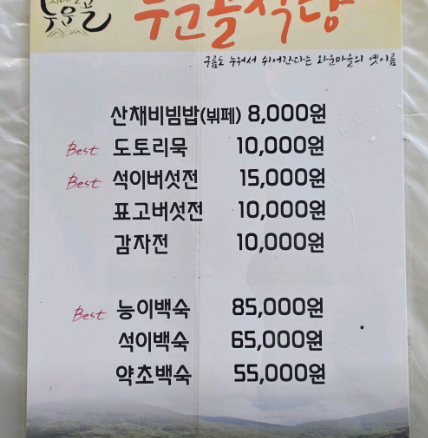 누운골
누운골식당
구름도 누워서 쉬어간다는 와운마을의 옛이름
산채비빔밥(뷔페) 8,000원
Best 도토리묵 10,000원
Best 석이버섯전 15,000원
표고버섯전 10,000원
감자전 10,000원
Best 능이백숙 85,000원
석이백숙 65,000원
약초백숙 55,000원